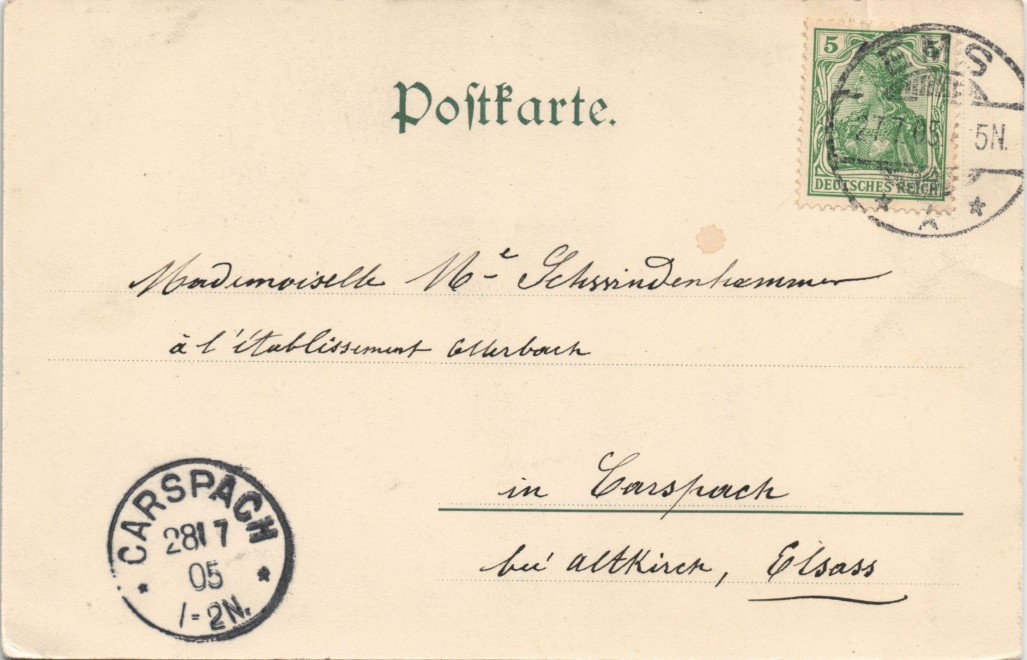 Postkarte.
5 5
DEUTSCHES REICH
EMS
27.7.05 5N.
* a *
Mademoiselle Mᵉ Schwindenhammer
à l'établissement Ellerbach
in Carspach
bei Altkirch, Elsass
CARSPACH
28 7
05
1-2N.